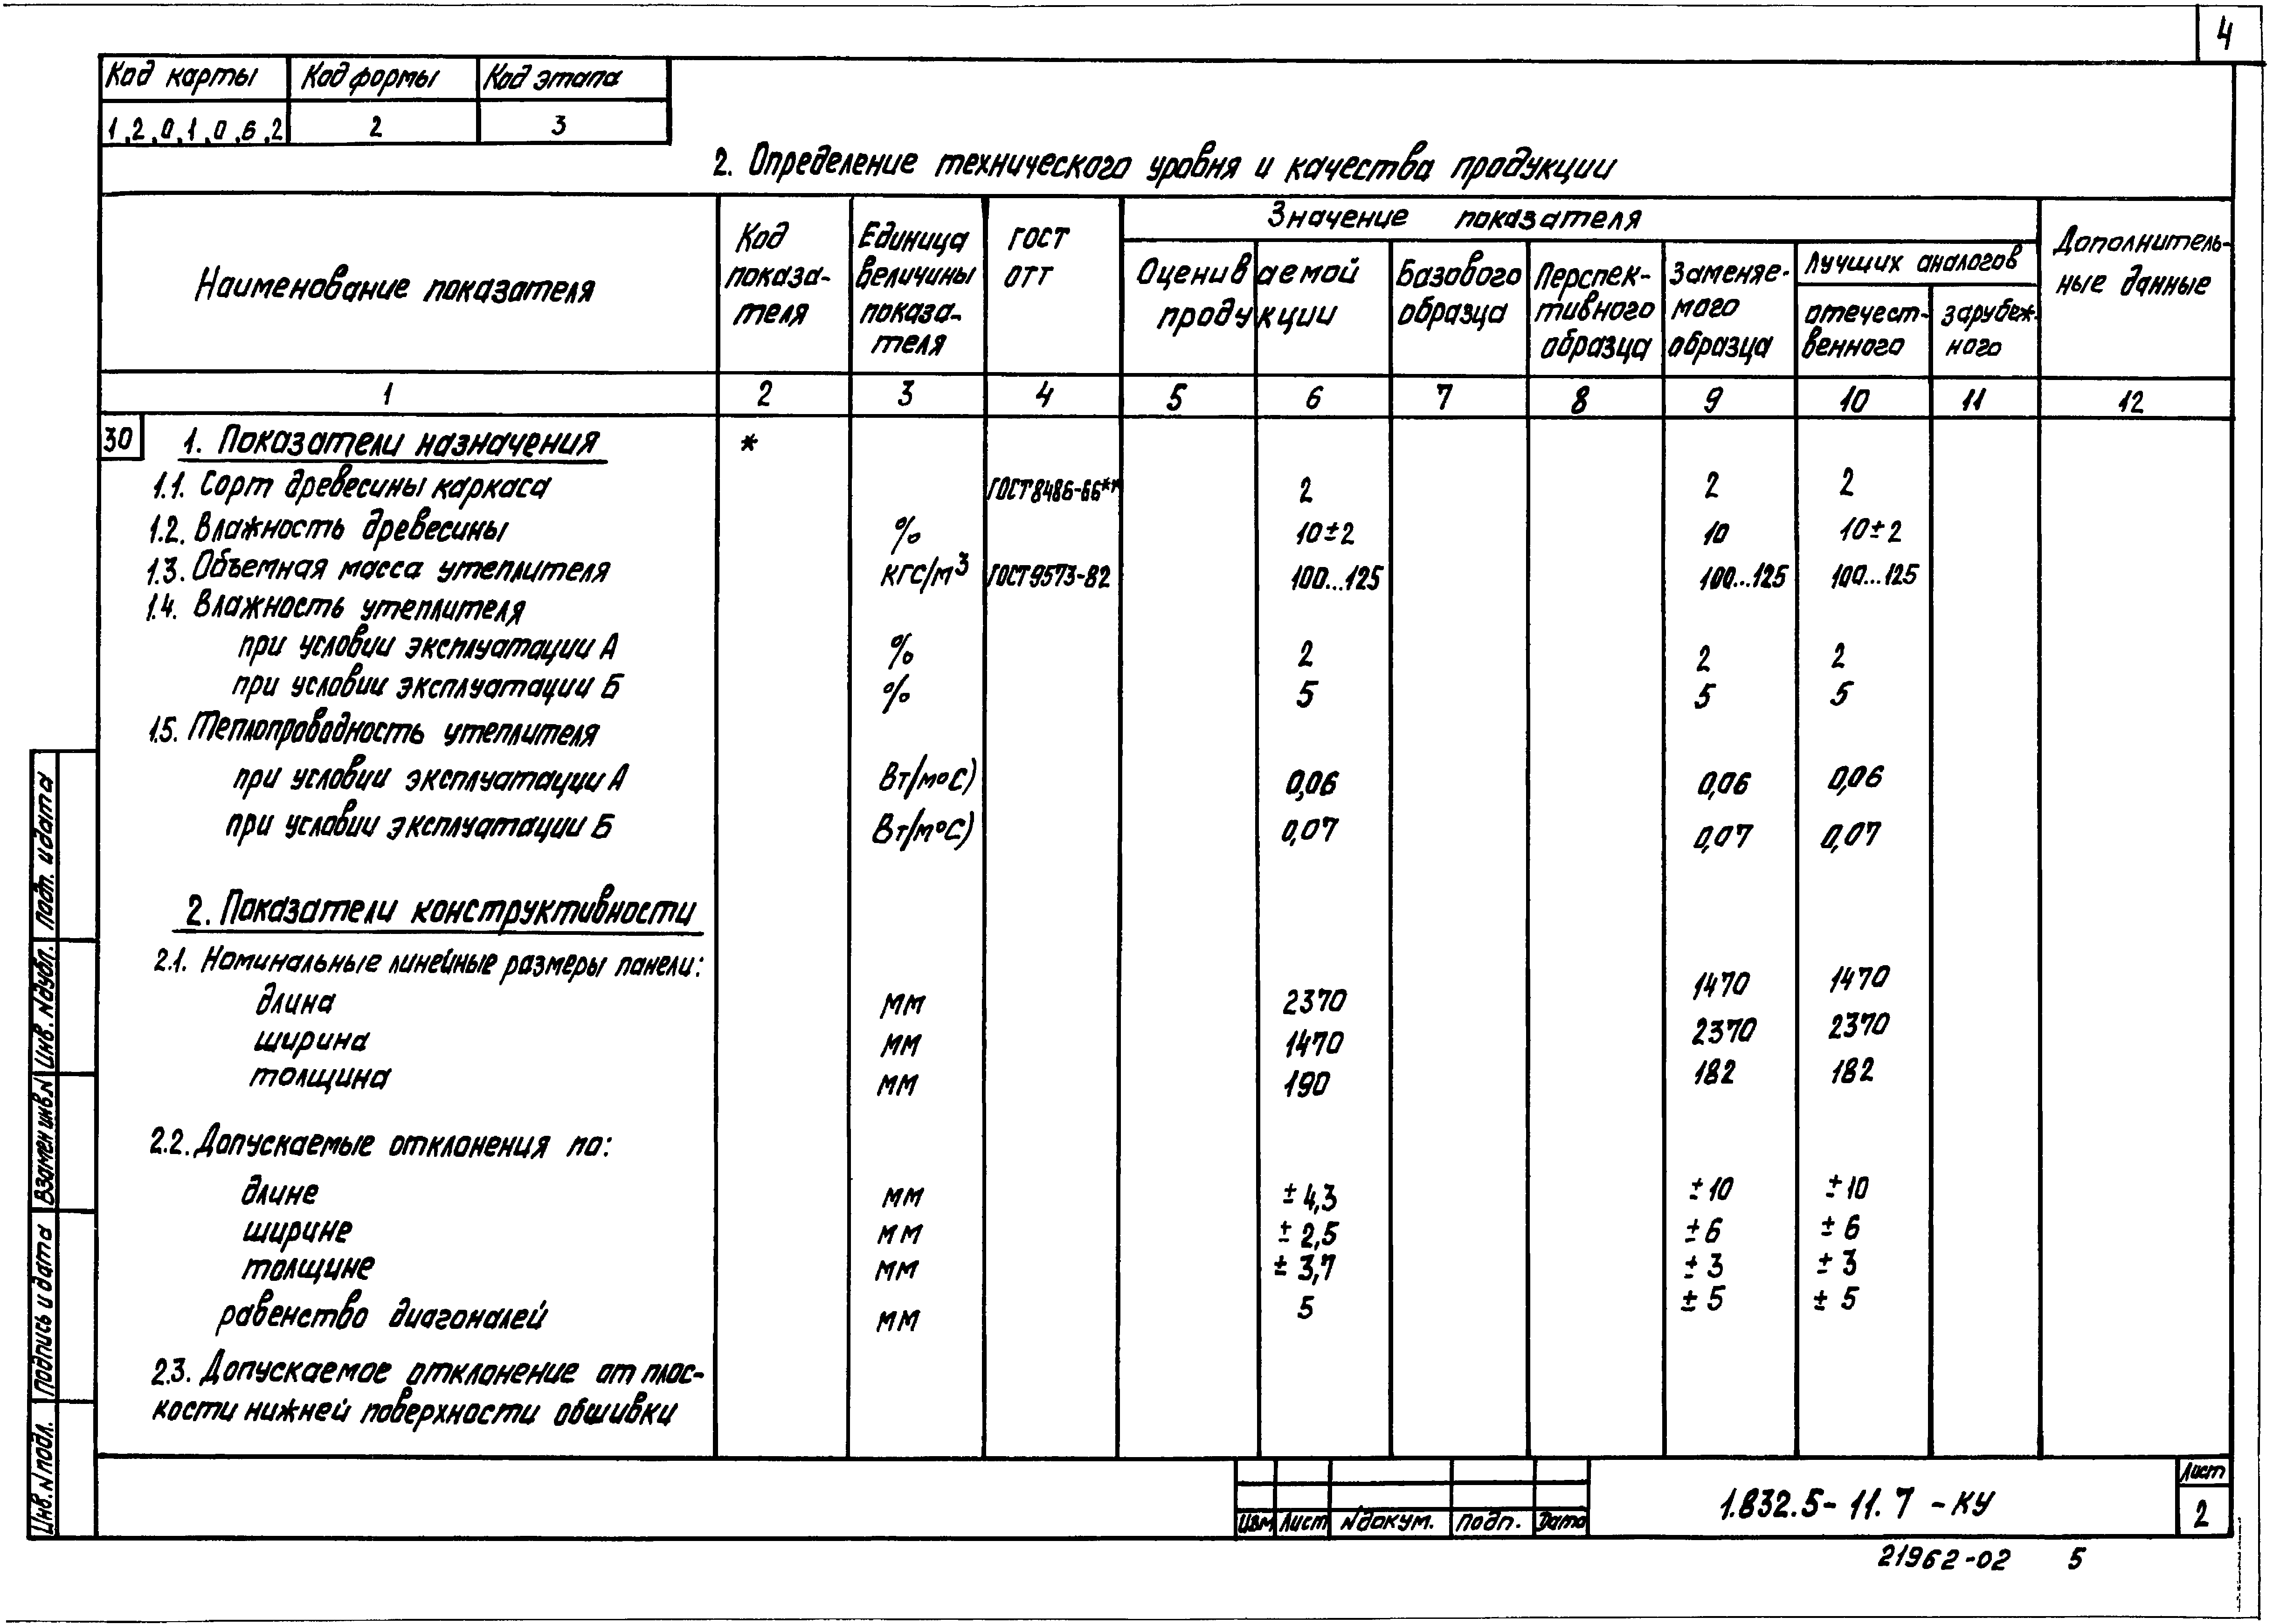 4
Код карты Код формы Код этапа
1,2,0,1,0,6,2 2 3
2. Определение технического уровня и качества продукции
Наименование показателя
Код показа- теля
Единица величины показа- теля
ГОСТ ОТТ
Значение показателя
Оцениваемой продукции
Базового образца
Перспек- тивного образца
Заменяе- мого образца
Лучших аналогов
отечест- венного
зарубеж- ного
Дополнитель- ные данные
1 2 3 4 5 6 7 8 9 10 11 12
30 1. Показатели назначения *
1.1. Сорт древесины каркаса ГОСТ 8486-66** 2 2 2
1.2. Влажность древесины % 10±2 10 10±2
1.3. Объемная масса утеплителя кгс/м³ ГОСТ 9573-82 100...125 100...125 100...125
1.4. Влажность утеплителя
при условии эксплуатации А % 2 2 2
при условии эксплуатации Б % 5 5 5
1.5. Теплопроводность утеплителя
при условии эксплуатации А Вт/м°С) 0,06 0,06 0,06
при условии эксплуатации Б Вт/м°С) 0,07 0,07 0,07
2. Показатели конструктивности
2.1. Номинальные линейные размеры панели:
длина мм 2370 1470 1470
ширина мм 1470 2370 2370
толщина мм 190 182 182
2.2. Допускаемые отклонения по:
длине мм ± 4,3 ±10 ±10
ширине мм ± 2,5 ±6 ±6
толщине мм ± 3,7 ±3 ±3
равенство диагоналей мм 5 ±5 ±5
2.3. Допускаемое отклонение от плос-
кости нижней поверхности обшивки
Изм Лист №докум. Подп. Дата
1.832.5-11.7-КУ
Лист
2
21962-02 5
Инв.№подл. Подпись и дата Взамен инв№ Инв.№дубл. Подп. и дата